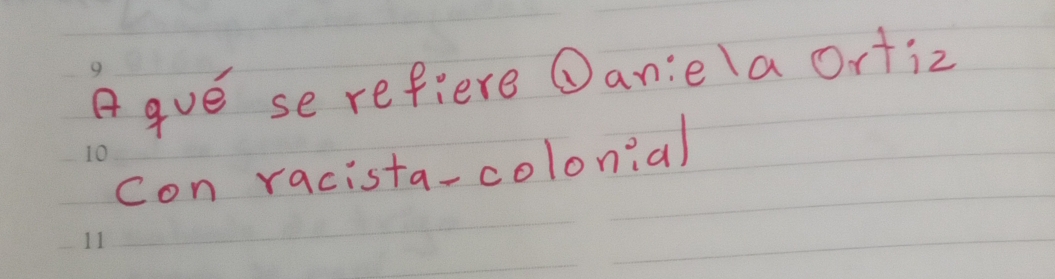 9
A qué se refiere Daniela Ortiz
10
con racista-colonial
11